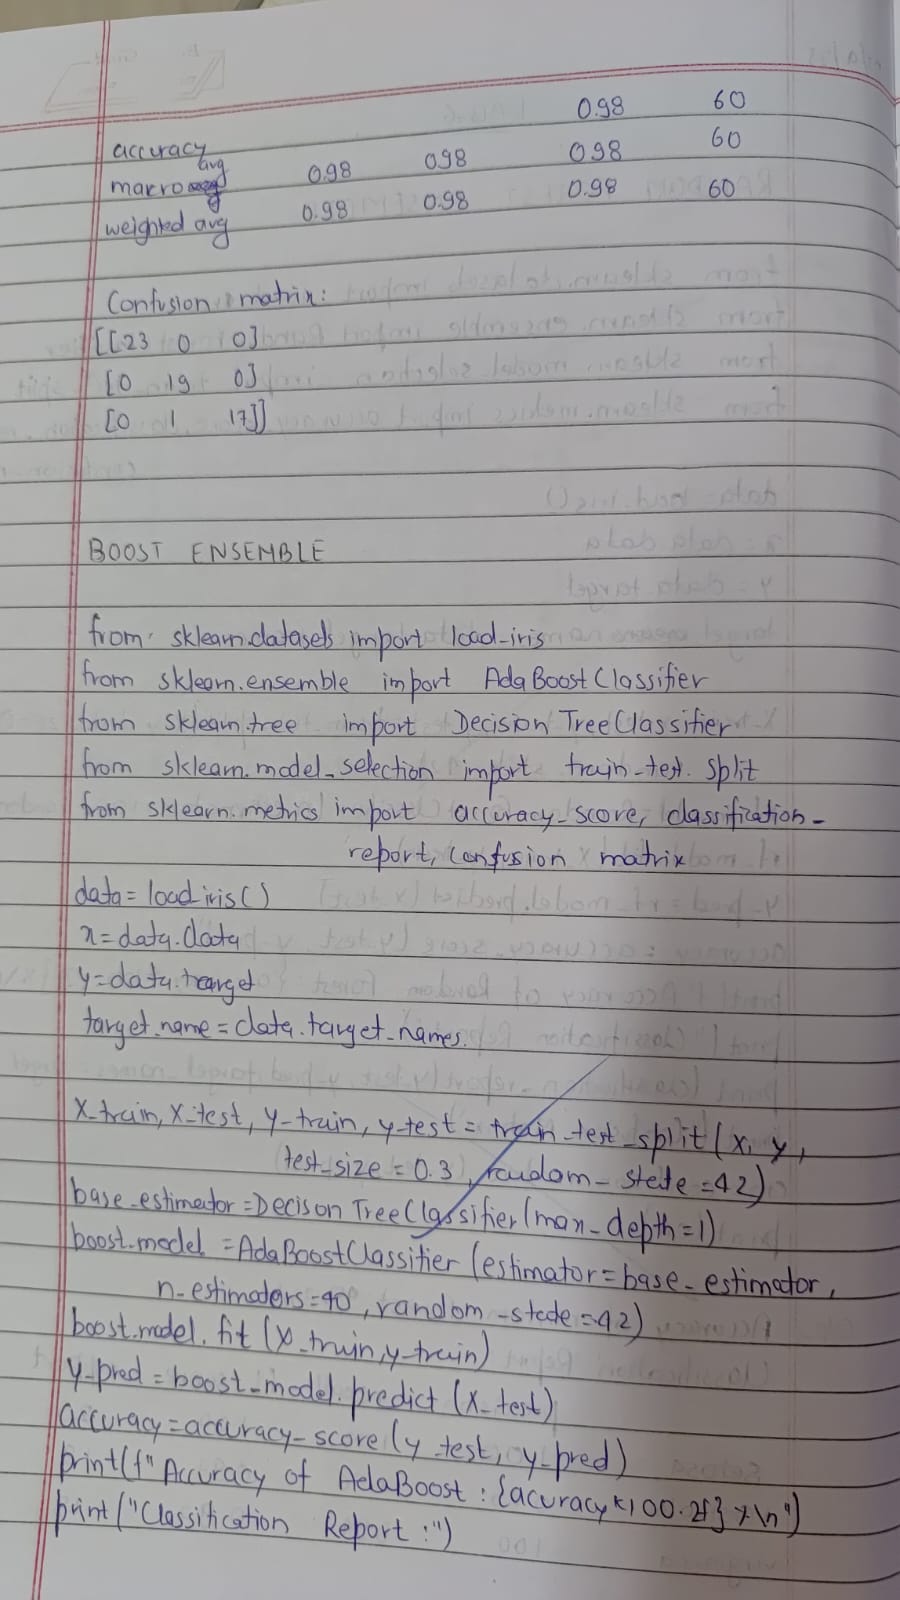 0.98 60
accuracy 60
makro avg 0.98 0.98 0.98
weighted avg 0.98 0.98 0.98 60
Confusion matrix:
[[23 0 0]
[0 19 0]
[0 1 17]]
BOOST ENSEMBLE
from sklearn.datasets import load-iris
from sklearn.ensemble import AdaBoostClassifier
from sklearn.tree import DecisionTreeClassifier
from sklearn.model_selection import train-test. split
from sklearn.metrics import accuracy-score, classification-
report, confusion matrix
data = load iris()
x=data.data
y=data.target
target.name = data.target-names.
X-train, X-test, y-train, y-test = train-test-split(x, y,
test-size = 0.3, random-state = 42)
base-estimator = Decison TreeClassifier(max-depth=1)
boost.model = AdaBoostClassifier (estimator=base-estimator,
n-estimators=90, random-state = 42)
boost.model.fit (X-train, y-train)
y-pred = boost-model.predict (X-test)
accuracy = accuracy-score (y test, y-pred)
print(f" Accuracy of AdaBoost : {acuracy*100.2f} %\n")
print ("Classification Report :")